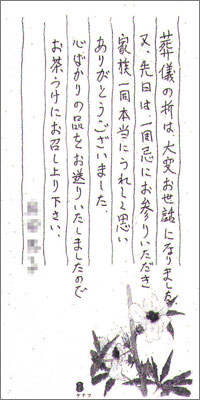 葬儀の折は、大変お世話になりました。
又、先日は一周忌にお参りいただき
家族一同本当にうれしく思い
ありがとうございました。
心ばかりの品をお送りいたしましたので
お茶うけにお召し上り下さい。